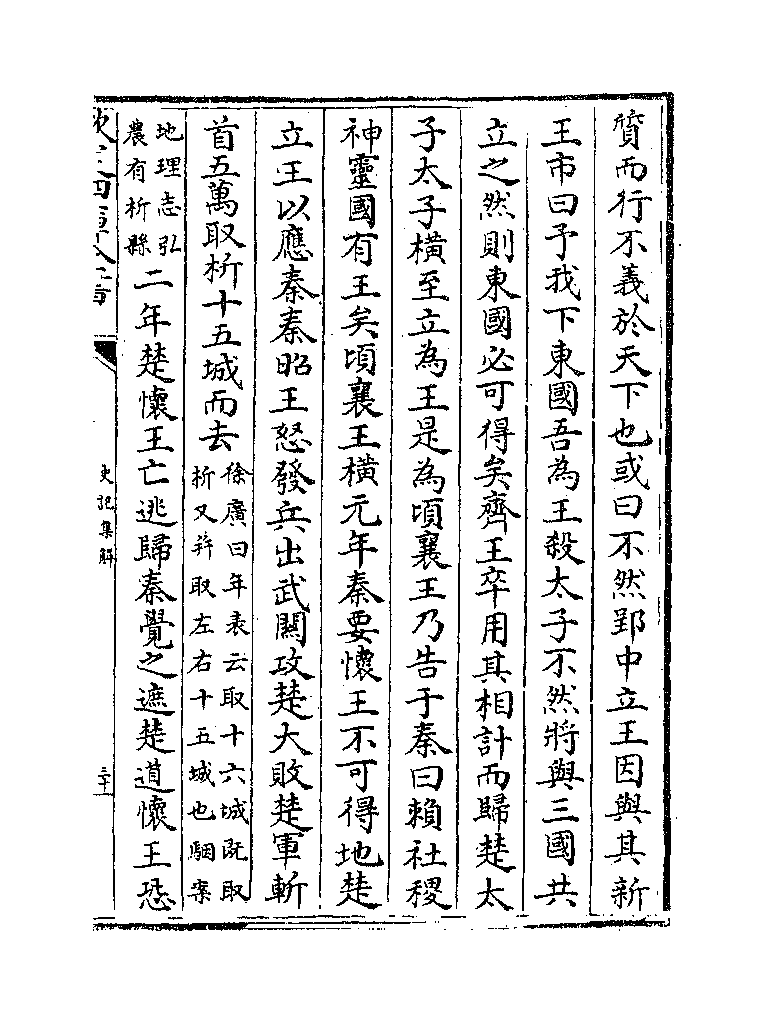 質而行不義於天下也或曰不然郢中立王因與其新
王市曰予我下東國吾為王殺太子不然將與三國共
立之然則東國必可得矣齊王卒用其相計而歸楚太
子太子橫至立為王是為頃襄王乃告于秦曰賴社稷
神靈國有王矣頃襄王橫元年秦要懷王不可得地楚
立王以應秦秦昭王怒發兵出武關攻楚大敗楚軍斬
首五萬取析十五城而去
徐廣曰年表云取十六城既取
析又并取左右十五城也駰案
地理志弘
農有析縣
二年楚懷王亡逃歸秦覺之遮楚道懷王恐
欽定四庫全書
史記集解
三十